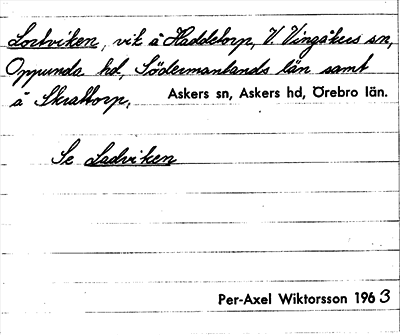 Lortviken, vik å Haddetorp, V. Vingåkers sn,
Oppunda hd, Södermanlands län samt
å Skrattorp, Askers sn, Askers hd, Örebro län.
Se Ladviken
Per-Axel Wiktorsson 1963